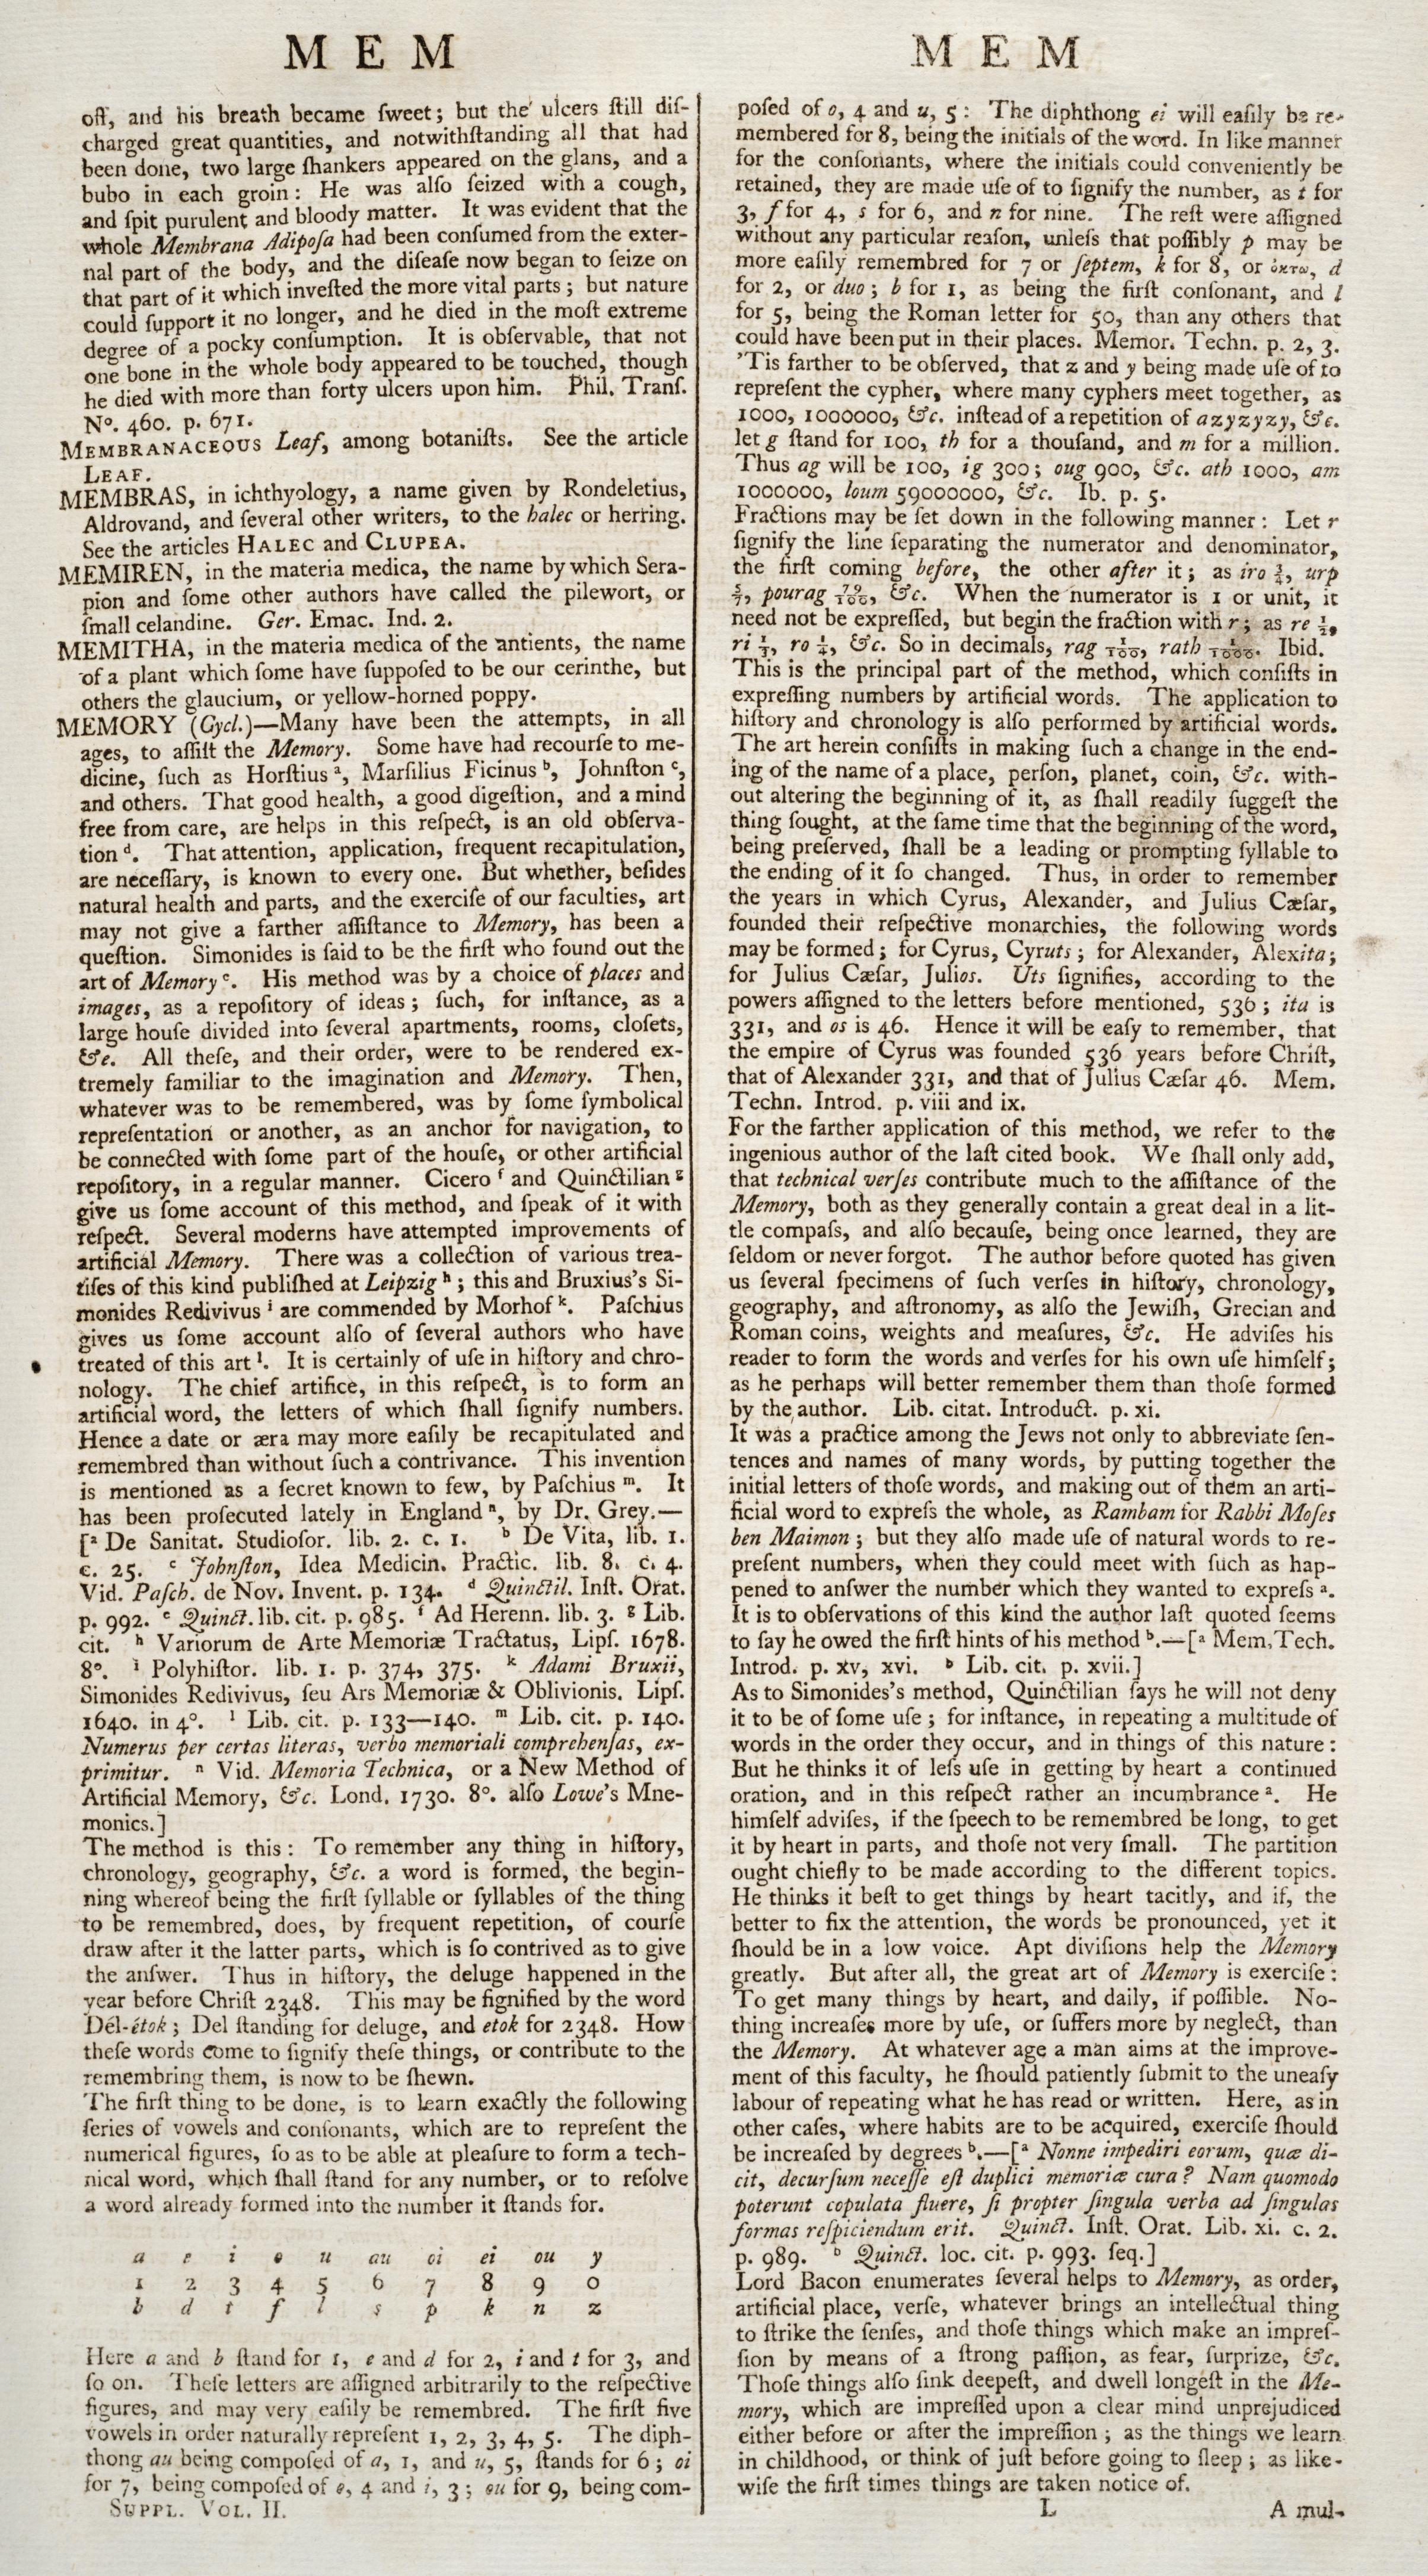 M E M
oſt, and his breath became ſweet; but the ulcers ſtill diſ-
charged great quantities, and notwithſtanding all that had
been done, two large ſhankers appeared on the glans, and a
bubo in each groin: He was alſo ſeized with a cough,
and ſpit purulent and bloody matter. It was evident that the
whole Membrana Adipoſa had been conſumed from the exter-
nal part of the body, and the diſeaſe now began to ſeize on
that part of it which inveſted the more vital parts; but nature
could ſupport it no longer, and he died in the moſt extreme
degree of a pocky conſumption. It is obſervable, that not
one bone in the whole body appeared to be touched, though
he died with more than forty ulcers upon him. Phil. Tranſ.
Nº. 460. p. 671.
MEMBRANACEOUS Leaf, among botaniſts. See the article
LEAF.
MEMBRAS, in ichthyology, a name given by Rondeletius,
Aldrovand, and ſeveral other writers, to the halec or herring.
See the articles HALEC and CLUPEA.
MEMIREN, in the materia medica, the name by which Sera-
pion and ſome other authors have called the pilewort, or
ſmall celandine. Ger. Emac. Ind. 2.
MEMITHA, in the materia medica of the antients, the name
of a plant which ſome have ſuppoſed to be our cerinthe, but
others the glaucium, or yellow-horned poppy.
MEMORY (Cycl.)—Many have been the attempts, in all
ages, to aſſiſt the Memory. Some have had recourſe to me-
dicine, ſuch as Horſtius ª, Marſilius Ficinus ᵇ, Johnſton ᶜ,
and others. That good health, a good digeſtion, and a mind
free from care, are helps in this reſpect, is an old obſerva-
tion ᵈ. That attention, application, frequent recapitulation,
are neceſſary, is known to every one. But whether, beſides
natural health and parts, and the exerciſe of our faculties, art
may not give a farther aſſiſtance to Memory, has been a
queſtion. Simonides is ſaid to be the firſt who found out the
art of Memory ᵉ. His method was by a choice of places and
images, as a repoſitory of ideas; ſuch, for inſtance, as a
large houſe divided into ſeveral apartments, rooms, cloſets,
&c. All theſe, and their order, were to be rendered ex-
tremely familiar to the imagination and Memory. Then,
whatever was to be remembered, was by ſome ſymbolical
repreſentation or another, as an anchor for navigation, to
be connected with ſome part of the houſe, or other artificial
repoſitory, in a regular manner. Cicero ᶠ and Quinctilian ᵍ
give us ſome account of this method, and ſpeak of it with
reſpect. Several moderns have attempted improvements of
artificial Memory. There was a collection of various trea-
tiſes of this kind publiſhed at Leipzig ʰ; this and Bruxius's Si-
monides Redivivus ⁱ are commended by Morhof ᵏ. Paſchius
gives us ſome account alſo of ſeveral authors who have
treated of this art ˡ. It is certainly of uſe in hiſtory and chro-
nology. The chief artifice, in this reſpect, is to form an
artificial word, the letters of which ſhall ſignify numbers.
Hence a date or æra may more eaſily be recapitulated and
remembred than without ſuch a contrivance. This invention
is mentioned as a ſecret known to few, by Paſchius ᵐ. It
has been proſecuted lately in England ⁿ, by Dr. Grey.—
[ª De Sanitat. Studioſor. lib. 2. c. 1. ᵇ De Vita, lib. 1.
c. 25. ᶜ Johnſton, Idea Medicin. Practic. lib. 8. c. 4.
Vid. Paſch. de Nov. Invent. p. 134. ᵈ Quinctil. Inſt. Orat.
p. 992. ᵉ Quinct. lib. cit. p. 985. ᶠ Ad Herenn. lib. 3. ᵍ Lib.
cit. ʰ Variorum de Arte Memoriæ Tractatus, Lipſ. 1678.
8°. ⁱ Polyhiſtor. lib. 1. p. 374, 375. ᵏ Adami Bruxii,
Simonides Redivivus, ſeu Ars Memoriæ & Oblivionis. Lipſ.
1640. in 4°. ˡ Lib. cit. p. 133—140. ᵐ Lib. cit. p. 140.
Numerus per certas literas, verbo memoriali comprehenſas, ex-
primitur. ⁿ Vid. Memoria Technica, or a New Method of
Artificial Memory, &c. Lond. 1730. 8°. alſo Lowe's Mne-
monics.]
The method is this: To remember any thing in hiſtory,
chronology, geography, &c. a word is formed, the begin-
ning whereof being the firſt ſyllable or ſyllables of the thing
to be remembred, does, by frequent repetition, of courſe
draw after it the latter parts, which is ſo contrived as to give
the anſwer. Thus in hiſtory, the deluge happened in the
year before Chriſt 2348. This may be ſignified by the word
Del-étok; Del ſtanding for deluge, and etok for 2348. How
theſe words come to ſignify theſe things, or contribute to the
remembring them, is now to be ſhewn.
The firſt thing to be done, is to learn exactly the following
ſeries of vowels and conſonants, which are to repreſent the
numerical figures, ſo as to be able at pleaſure to form a tech-
nical word, which ſhall ſtand for any number, or to reſolve
a word already formed into the number it ſtands for.
a e i o u au oi ei ou y
1 2 3 4 5 6 7 8 9 0
b d t f l s p k n z
Here a and b ſtand for 1, e and d for 2, i and t for 3, and
ſo on. Theſe letters are aſſigned arbitrarily to the reſpective
figures, and may very eaſily be remembred. The firſt five
vowels in order naturally repreſent 1, 2, 3, 4, 5. The diph-
thong au being compoſed of a, 1, and u, 5, ſtands for 6; oi
for 7, being compoſed of o, 4 and i, 3; ou for 9, being com-
SUPPL. VOL. II.
M E M
poſed of o, 4 and u, 5: The diphthong ei will eaſily be re-
membered for 8, being the initials of the word. In like manner
for the conſonants, where the initials could conveniently be
retained, they are made uſe of to ſignify the number, as t for
3, f for 4, s for 6, and n for nine. The reſt were aſſigned
without any particular reaſon, unleſs that poſſibly p may be
more eaſily remembred for 7 or ſeptem, k for 8, or ὀκτω, d
for 2, or duo; b for 1, as being the firſt conſonant, and l
for 5, being the Roman letter for 50, than any others that
could have been put in their places. Memor. Techn. p. 2, 3.
'Tis farther to be obſerved, that z and y being made uſe of to
repreſent the cypher, where many cyphers meet together, as
1000, 1000000, &c. inſtead of a repetition of azyzyzy, &c.
let g ſtand for 100, th for a thouſand, and m for a million.
Thus ag will be 100, ig 300; oug 900, &c. ath 1000, am
1000000, loum 59000000, &c. Ib. p. 5.
Fractions may be ſet down in the following manner: Let r
ſignify the line ſeparating the numerator and denominator,
the firſt coming before, the other after it; as iro 3/4, urp
5/7, pourag 79/100, &c. When the numerator is 1 or unit, it
need not be expreſſed, but begin the fraction with r; as re 1/2,
ri 1/3, ro 1/4, &c. So in decimals, rag 1/100, rath 1/1000. Ibid.
This is the principal part of the method, which conſiſts in
expreſſing numbers by artificial words. The application to
hiſtory and chronology is alſo performed by artificial words.
The art herein conſiſts in making ſuch a change in the end-
ing of the name of a place, perſon, planet, coin, &c. with-
out altering the beginning of it, as ſhall readily ſuggeſt the
thing ſought, at the ſame time that the beginning of the word,
being preſerved, ſhall be a leading or prompting ſyllable to
the ending of it ſo changed. Thus, in order to remember
the years in which Cyrus, Alexander, and Julius Cæſar,
founded their reſpective monarchies, the following words
may be formed; for Cyrus, Cyruts; for Alexander, Alexita;
for Julius Cæſar, Julios. Uts ſignifies, according to the
powers aſſigned to the letters before mentioned, 536; ita is
331, and os is 46. Hence it will be eaſy to remember, that
the empire of Cyrus was founded 536 years before Chriſt,
that of Alexander 331, and that of Julius Cæſar 46. Mem.
Techn. Introd. p. viii and ix.
For the farther application of this method, we refer to the
ingenious author of the laſt cited book. We ſhall only add,
that technical verſes contribute much to the aſſiſtance of the
Memory, both as they generally contain a great deal in a lit-
tle compaſs, and alſo becauſe, being once learned, they are
ſeldom or never forgot. The author before quoted has given
us ſeveral ſpecimens of ſuch verſes in hiſtory, chronology,
geography, and aſtronomy, as alſo the Jewiſh, Grecian and
Roman coins, weights and meaſures, &c. He adviſes his
reader to form the words and verſes for his own uſe himſelf;
as he perhaps will better remember them than thoſe formed
by the author. Lib. citat. Introduct. p. xi.
It was a practice among the Jews not only to abbreviate ſen-
tences and names of many words, by putting together the
initial letters of thoſe words, and making out of them an arti-
ficial word to expreſs the whole, as Rambam for Rabbi Moſes
ben Maimon; but they alſo made uſe of natural words to re-
preſent numbers, when they could meet with ſuch as hap-
pened to anſwer the number which they wanted to expreſs ª.
It is to obſervations of this kind the author laſt quoted ſeems
to ſay he owed the firſt hints of his method ᵇ.—[ª Mem. Tech.
Introd. p. xv, xvi. ᵇ Lib. cit. p. xvii.]
As to Simonides's method, Quinctilian ſays he will not deny
it to be of ſome uſe; for inſtance, in repeating a multitude of
words in the order they occur, and in things of this nature:
But he thinks it of leſs uſe in getting by heart a continued
oration, and in this reſpect rather an incumbrance ª. He
himſelf adviſes, if the ſpeech to be remembred be long, to get
it by heart in parts, and thoſe not very ſmall. The partition
ought chiefly to be made according to the different topics.
He thinks it beſt to get things by heart tacitly, and if, the
better to fix the attention, the words be pronounced, yet it
ſhould be in a low voice. Apt diviſions help the Memory
greatly. But after all, the great art of Memory is exerciſe:
To get many things by heart, and daily, if poſſible. No-
thing increaſes more by uſe, or ſuffers more by neglect, than
the Memory. At whatever age a man aims at the improve-
ment of this faculty, he ſhould patiently ſubmit to the uneaſy
labour of repeating what he has read or written. Here, as in
other caſes, where habits are to be acquired, exerciſe ſhould
be increaſed by degrees ᵇ.—[ª Nonne impediri eorum, quæ di-
cit, decurſum neceſſe eſt duplici memoriæ cura? Nam quomodo
poterunt copulata fluere, ſi propter ſingula verba ad ſingulas
formas reſpiciendum erit. Quinct. Inſt. Orat. Lib. xi. c. 2.
p. 989. ᵇ Quinct. loc. cit. p. 993. ſeq.]
Lord Bacon enumerates ſeveral helps to Memory, as order,
artificial place, verſe, whatever brings an intellectual thing
to ſtrike the ſenſes, and thoſe things which make an impreſ-
ſion by means of a ſtrong paſſion, as fear, ſurprize, &c.
Thoſe things alſo ſink deepeſt, and dwell longeſt in the Me-
mory, which are impreſſed upon a clear mind unprejudiced
either before or after the impreſſion; as the things we learn
in childhood, or think of juſt before going to ſleep; as like-
wiſe the firſt times things are taken notice of.
L A mul-